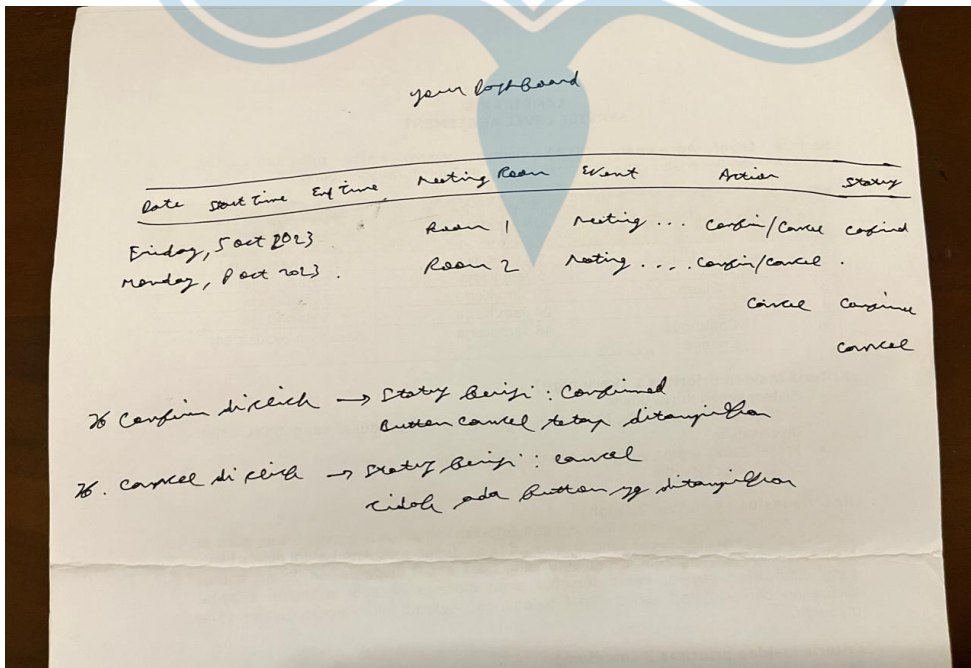 your Dashboard
Date Start Time End Time Meeting Room Event Action Status
Friday, 5 Oct 2023 Room 1 Meeting ... Confirm/Cancel Confirmed
Monday, 8 Oct 2023 . Room 2 Meeting .... Confirm/Cancel .
Cancel Confirmed
Cancel
Confirm di click → Status berisi : Confirmed
Button cancel tetap ditampilkan
Cancel di click → Status berisi : cancel
tidak ada button yg ditampilkan